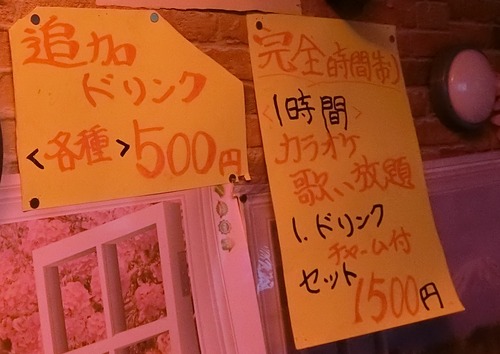 追加
ドリンク
<各種>500円
完全時間制
<1時間>
カラオケ
歌い放題
1.ドリンク
チャーム付
セット
1500円